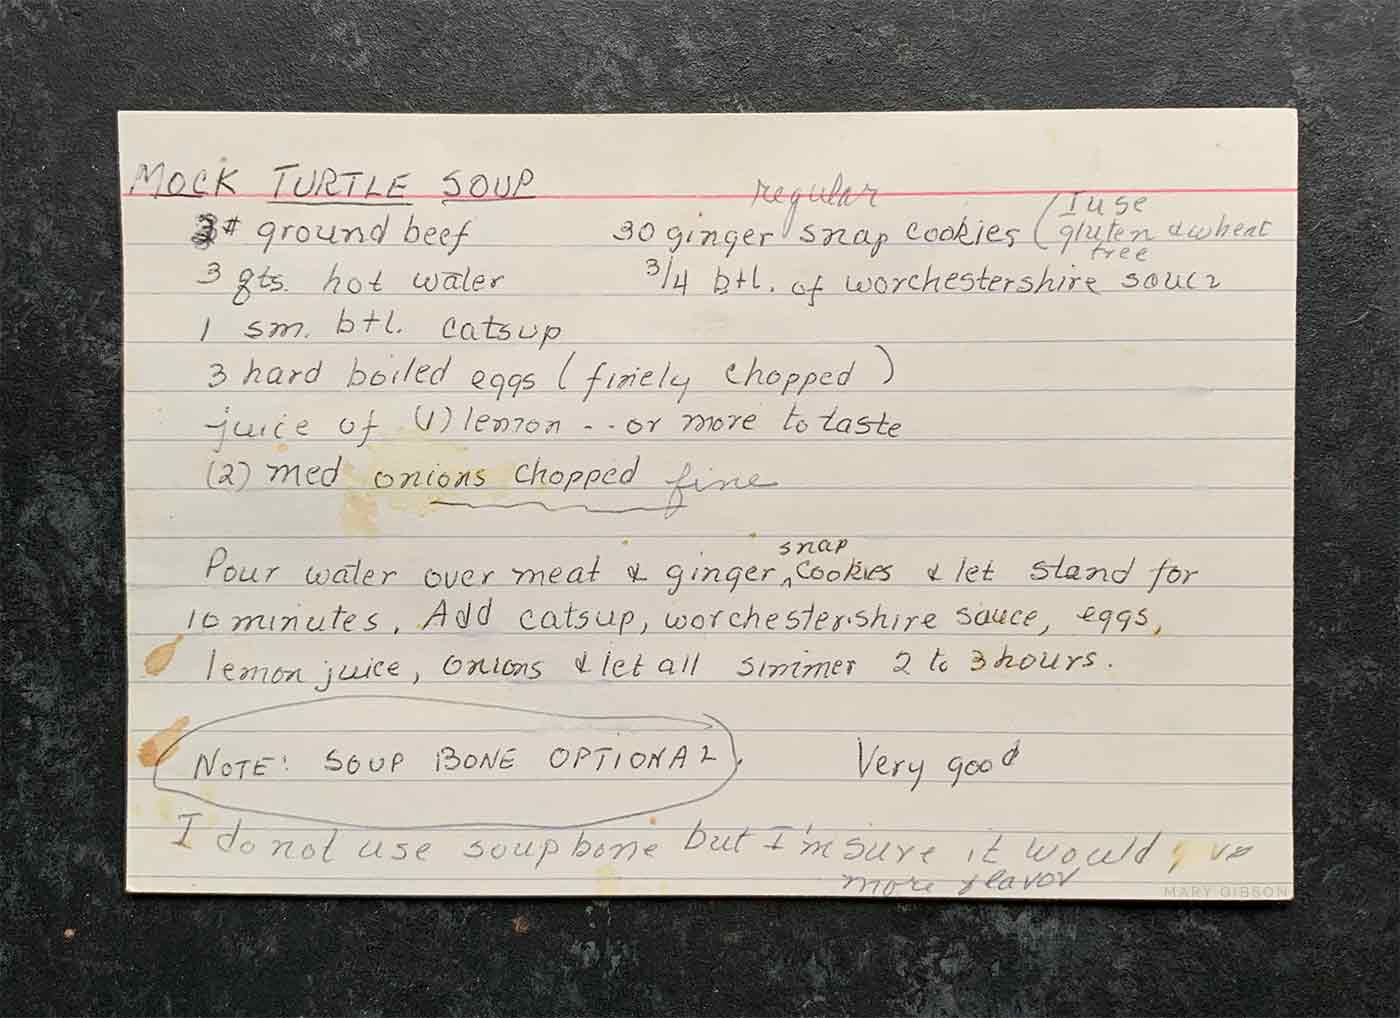 MOCK TURTLE SOUP
3# ground beef
3 qts. hot water
1 sm. btl. catsup
3 hard boiled eggs (finely chopped)
juice of (1) lemon -- or more to taste
(2) med onions chopped fine
regular
30 ginger snap cookies (I use
gluten & wheat
free
3/4 btl. of worchestershire souce
Pour water over meat & ginger ^snap cookies & let stand for
10 minutes. Add catsup, worchestershire sauce, eggs,
lemon juice, onions & let all simmer 2 to 3 hours.
NOTE: SOUP BONE OPTIONAL.
Very good
I do not use soup bone but I'm sure it would
more flavor
MARY GIBSON